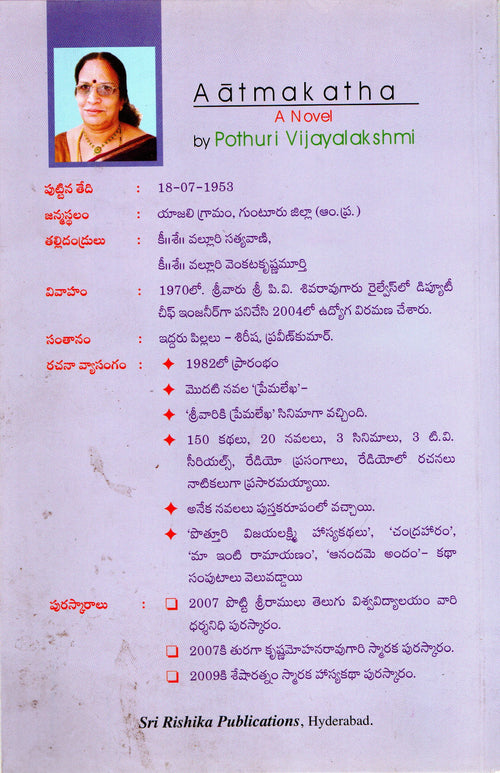 Aātmakatha
A Novel
by Pothuri Vijayalakshmi
పుట్టిన తేది : 18-07-1953
జన్మస్థలం : యాజలి గ్రామం, గుంటూరు జిల్లా (ఆం.ప్ర.)
తల్లిదండ్రులు : కీ॥శే॥ వల్లూరి సత్యవాణి,
కీ॥శే॥ వల్లూరి వెంకటకృష్ణమూర్తి
వివాహం : 1970లో. శ్రీవారు శ్రీ పి.వి. శివరావుగారు రైల్వేస్‌లో డిప్యూటీ
చీఫ్ ఇంజనీర్‌గా పనిచేసి 2004లో ఉద్యోగ విరమణ చేశారు.
సంతానం : ఇద్దరు పిల్లలు – శిరీష, ప్రవీణ్‌కుమార్.
రచనా వ్యాసంగం : ✦ 1982లో ప్రారంభం
✦ మొదటి నవల ‘ప్రేమలేఖ’–
✦ ‘శ్రీవారికి ప్రేమలేఖ’ సినిమాగా వచ్చింది.
✦ 150 కథలు, 20 నవలలు, 3 సినిమాలు, 3 టి.వి.
సీరియల్స్, రేడియో ప్రసంగాలు, రేడియోలో రచనలు
నాటికలుగా ప్రసారమయ్యాయి.
✦ అనేక నవలలు పుస్తకరూపంలో వచ్చాయి.
✦ ‘పొత్తూరి విజయలక్ష్మి హాస్యకథలు’, ‘చంద్రహారం’,
‘మా ఇంటి రామాయణం’, ‘ఆనందమె అందం’– కథా
సంపుటాలు వెలువడ్డాయి
పురస్కారాలు : ❑ 2007 పొట్టి శ్రీరాములు తెలుగు విశ్వవిద్యాలయం వారి
ధర్మనిధి పురస్కారం.
❑ 2007కి తురగా కృష్ణమోహనరావుగారి స్మారక పురస్కారం.
❑ 2009కి శేషారత్నం స్మారక హాస్యకథా పురస్కారం.
Sri Rishika Publications, Hyderabad.